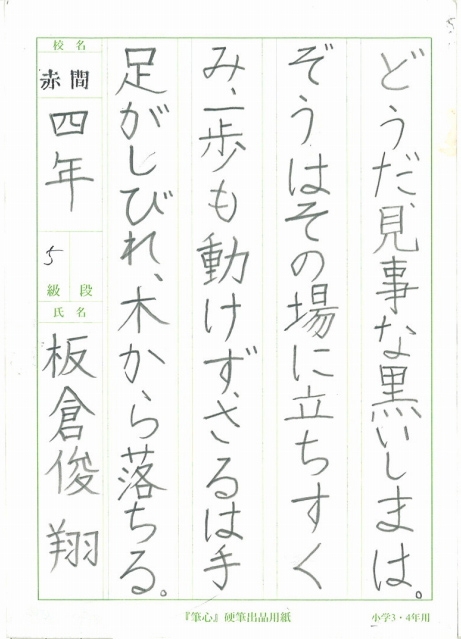 どうだ、見事な黒いしまは。
ぞうはその場に立ちすく
み、一歩も動けず、さるは手
足がしびれ、木から落ちる。
校名
赤間
四年
5
級 段
氏名
板倉俊翔
『筆心』硬筆出品用紙
小学3・4年用